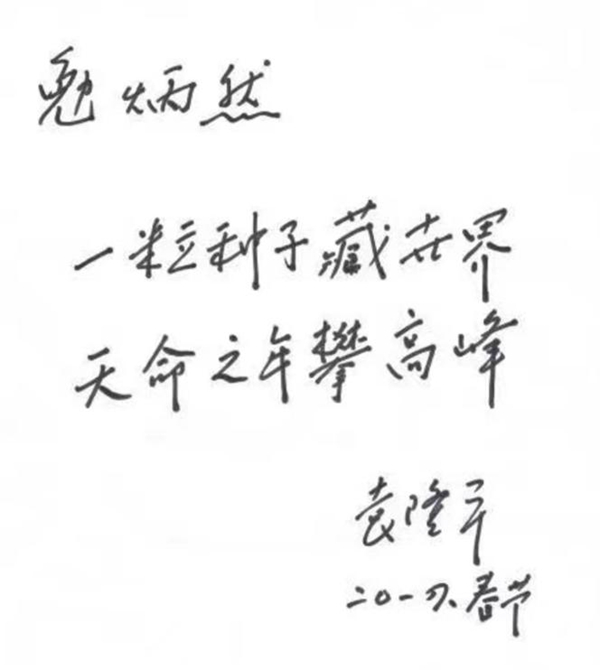 勉炳然
一粒种子藏世界
天命之年攀高峰
袁隆平
二〇一八.春节